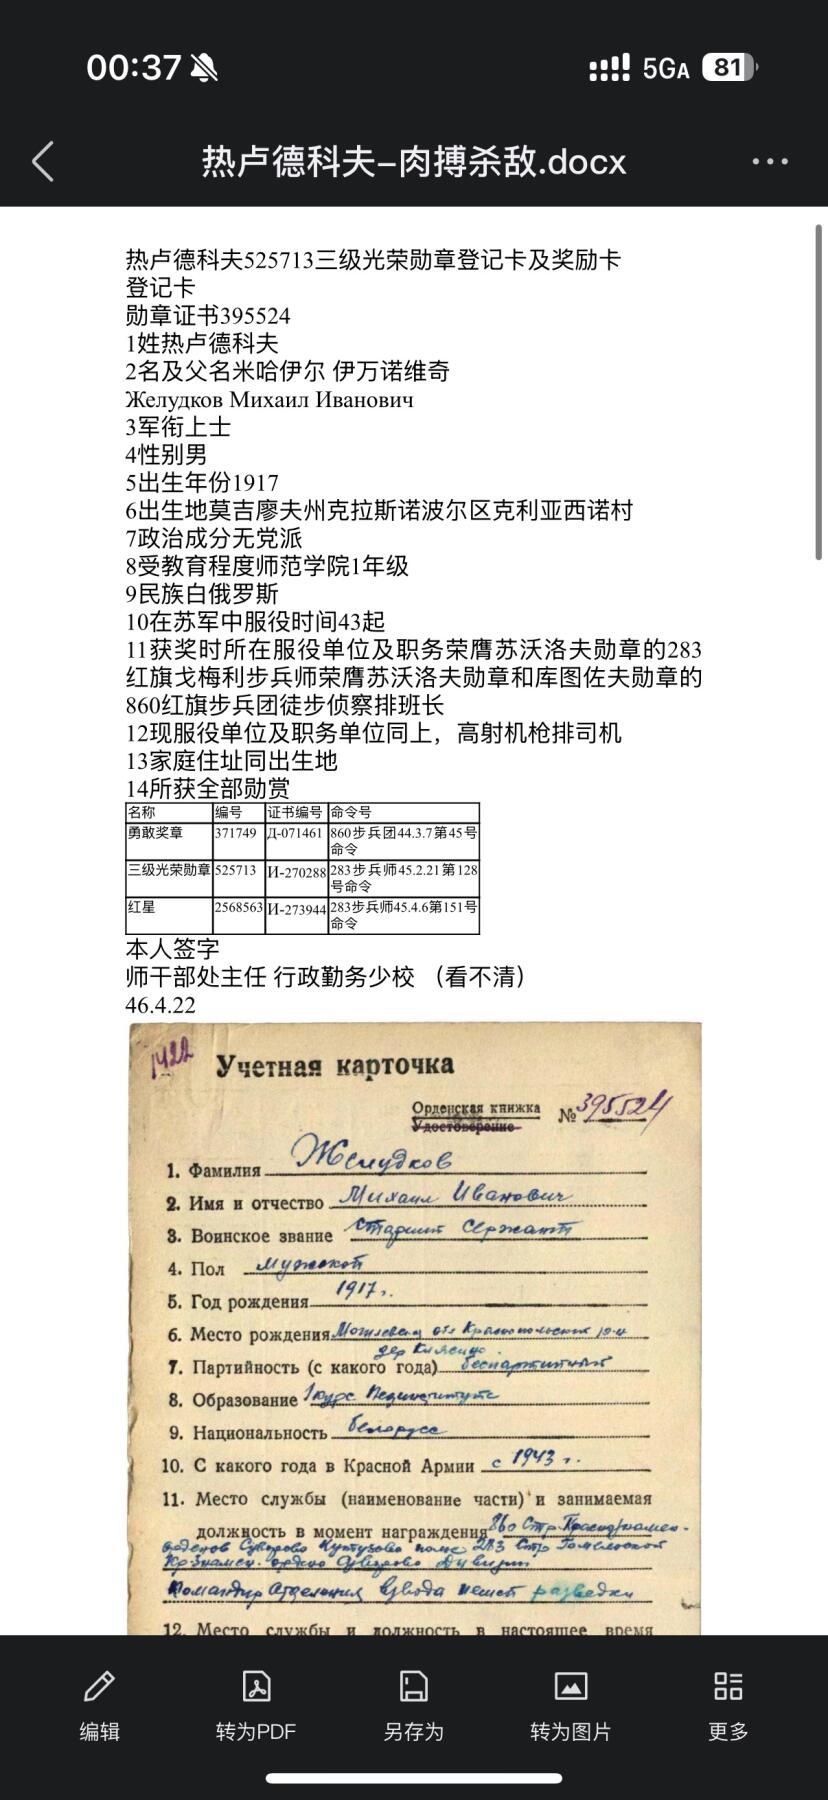 00:37
5GA 81
热卢德科夫-肉搏杀敌.docx
热卢德科夫525713三级光荣勋章登记卡及奖励卡
登记卡
勋章证书395524
1姓热卢德科夫
2名及父名米哈伊尔 伊万诺维奇
Желудков Михаил Иванович
3军衔上士
4性别男
5出生年份1917
6出生地莫吉廖夫州克拉斯诺波尔区克利亚西诺村
7政治成分无党派
8受教育程度师范学院1年级
9民族白俄罗斯
10在苏军中服役时间43起
11获奖时所在服役单位及职务荣膺苏沃洛夫勋章的283
红旗戈梅利步兵师荣膺苏沃洛夫勋章和库图佐夫勋章的
860红旗步兵团徒步侦察排班长
12现服役单位及职务单位同上，高射机枪排司机
13家庭住址同出生地
14所获全部勋赏
名称 编号 证书编号 命令号
勇敢奖章 371749 Д-071461 860步兵团44.3.7第45号
命令
三级光荣勋章 525713 И-270288 283步兵师45.2.21第128
号命令
红星 2568563 И-273944 283步兵师45.4.6第151号
命令
本人签字
师干部处主任 行政勤务少校 （看不清）
46.4.22
1422
Учетная карточка
Орденская книжка №395524
Удостоверение
1. Фамилия Желудков
2. Имя и отчество Михаил Иванович
3. Воинское звание старший сержант
4. Пол мужской
5. Год рождения 1917г.
6. Место рождения Могилевская обл Краснопольский р-н
дер Клясино
7. Партийность (с какого года) беспартийный
8. Образование 1 курс Пединститута
9. Национальность белорусс
10. С какого года в Красной Армии с 1943 г.
11. Место службы (наименование части) и занимаемая
должность в момент награждения 860 Стр. Краснознамен-
орденов Суворова Кутузова полк 283 Стр Гомельской
Кр Знамен. ордена Суворова Дивизии
Командир Отделения взвода пешей разведки
12. Место службы и должность в настоящее время
编辑
转为PDF
另存为
转为图片
更多